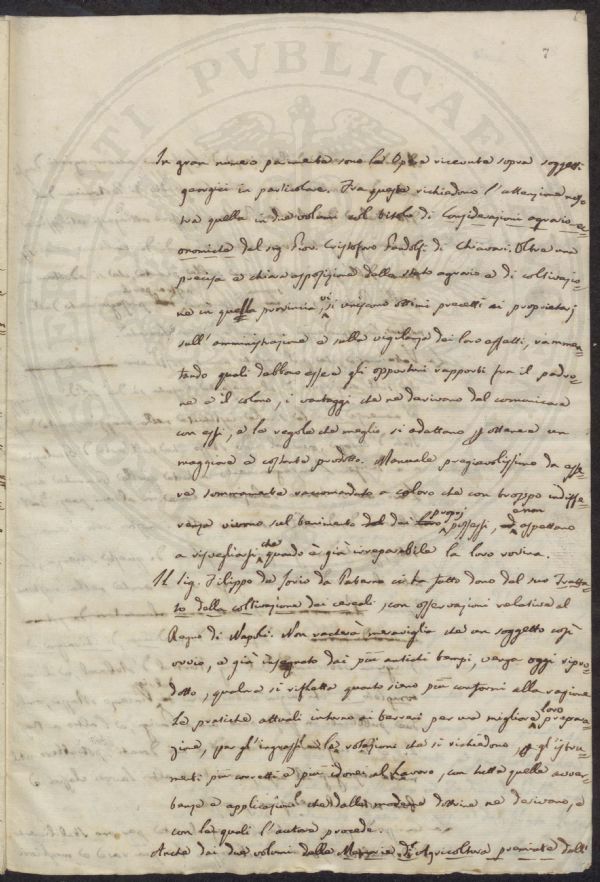 7
In gran numero parimente sono le Opere ricevute sopra soggetti
georgici in particolare. Fra queste richiedono l'attenzione nos-
tra quella in due volumi col titolo di Considerazioni agrario-ec-
onomiche del sig. Prov. Cristoforo Pandolfi di Chiavari. Oltre una
precisa e chiara esposizione dello stato agrario e di coltivazio-
ne in quella provincia, vi si veggono ottimi precetti ai proprietarj
sull'amministrazione e sulla vigilanza dei loro affitti, rammen-
tando quali debbano essere gli opportuni rapporti fra il padro-
ne e il colono, i vantaggi che ne derivano dal comunicare
con essi, e le regole che meglio si adattano per ottenere un
maggiore e costante prodotto. Manuale pregevolissimo da esse-
re sommamente raccomandato a coloro che con troppo indiffe-
renza vivono sul bonimento dei proprj possessi, e non aspettano
a risvegliarsi che quando è già irreparabile la loro rovina.
Il sig. Filippo de Jorio da Paterno ci ha fatto dono del suo Tratta-
to della coltivazione dei cereali, con osservazioni relative al
Regno di Napoli. Non recherà meraviglia che un soggetto così
ovvio, e già insegnato dai più antichi tempi, venga oggi ripro-
dotto, qualora si rifletta quanto sieno più conformi alla ragione
le pratiche attuali intorno ai terreni per una migliore loro prepara-
zione, per gl'ingrassi e le rotazioni che si richiedono, per gl'istru-
menti più corretti e più idonei al lavoro, con tutte quelle avver-
tenze e applicazioni che dalle moderne dottrine ne derivano, e
con le quali l'autore procede.
Anche dai due volumi delle Memorie di Agricoltura premiate dall'